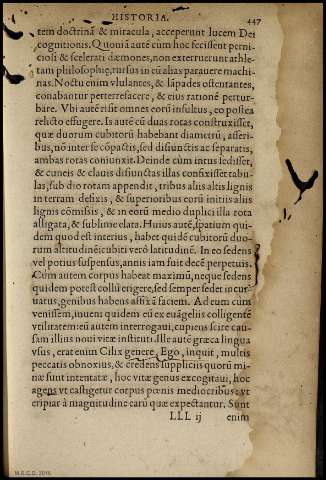 HISTORIA. 447
tem doctrinã & miracula, acceperunt lucem Dei
cognitionis. Quoniã autẽ cùm hoc fecissent perni-
ciosi & scelerati dæmones, non exterruerunt athle-
tam philosophię, rursus in eũ alias parauere machi-
nas. Noctu enim vlulantes, & lãpades ostentantes,
conabantur perterrefacere, & eius rationẽ pertur-
bare. Vbi autẽ risit omnes eorũ insultus, eo postea
relicto effugere. Is autẽ cũ duas rotas construxisset,
quæ duorum cubitorũ habebant diametrũ, asseri-
bus, nõ inter se cõpactis, sed disiunctis ac separatis,
ambas rotas coniunxit. Deinde cùm intus sedisset,
& cuneis & clauis disiunctas illas confixisset tabu-
las, sub dio rotam appendit, tribus aliis altis lignis
in terram defixis, & superioribus eorũ initiis aliis
lignis cõmissis, & in eorũ medio duplici illa rota
alligata, & sublimè elata. Huius autẽ, spatium qui-
dem quod est interius, habet quidẽ cubitorũ duo-
rum altitudinẽ: cubiti verò latitudinẽ. In eo sedens
vel potius suspensus, annis iam fuit decẽ perpetuis.
Cùm autem corpus habeat maximũ, neque sedens
quidem potest collũ erigere, sed semper sedet incur-
uatus, genibus habens affixã faciem. Ad eum cùm
venissem, inueni quidem eũ ex euãgeliis colligentẽ
vtilitatem: eũ autem interrogaui, cupiens scire cau-
sam illius noui vitæ instituti. Ille autẽ græca lingua
vsus, erat enim Cilix genere, Ego, inquit, multis
peccatis obnoxius, & credens suppliciis quorũ mi-
næ sunt intentatæ, hoc vitæ genus excogitaui, hoc
agens vt castigetur corpus pœnis mediocribus: vt
eripiar à magnitudine earũ quæ expectantur. Sunt
LLL ij enim
M.E.C.D. 2016